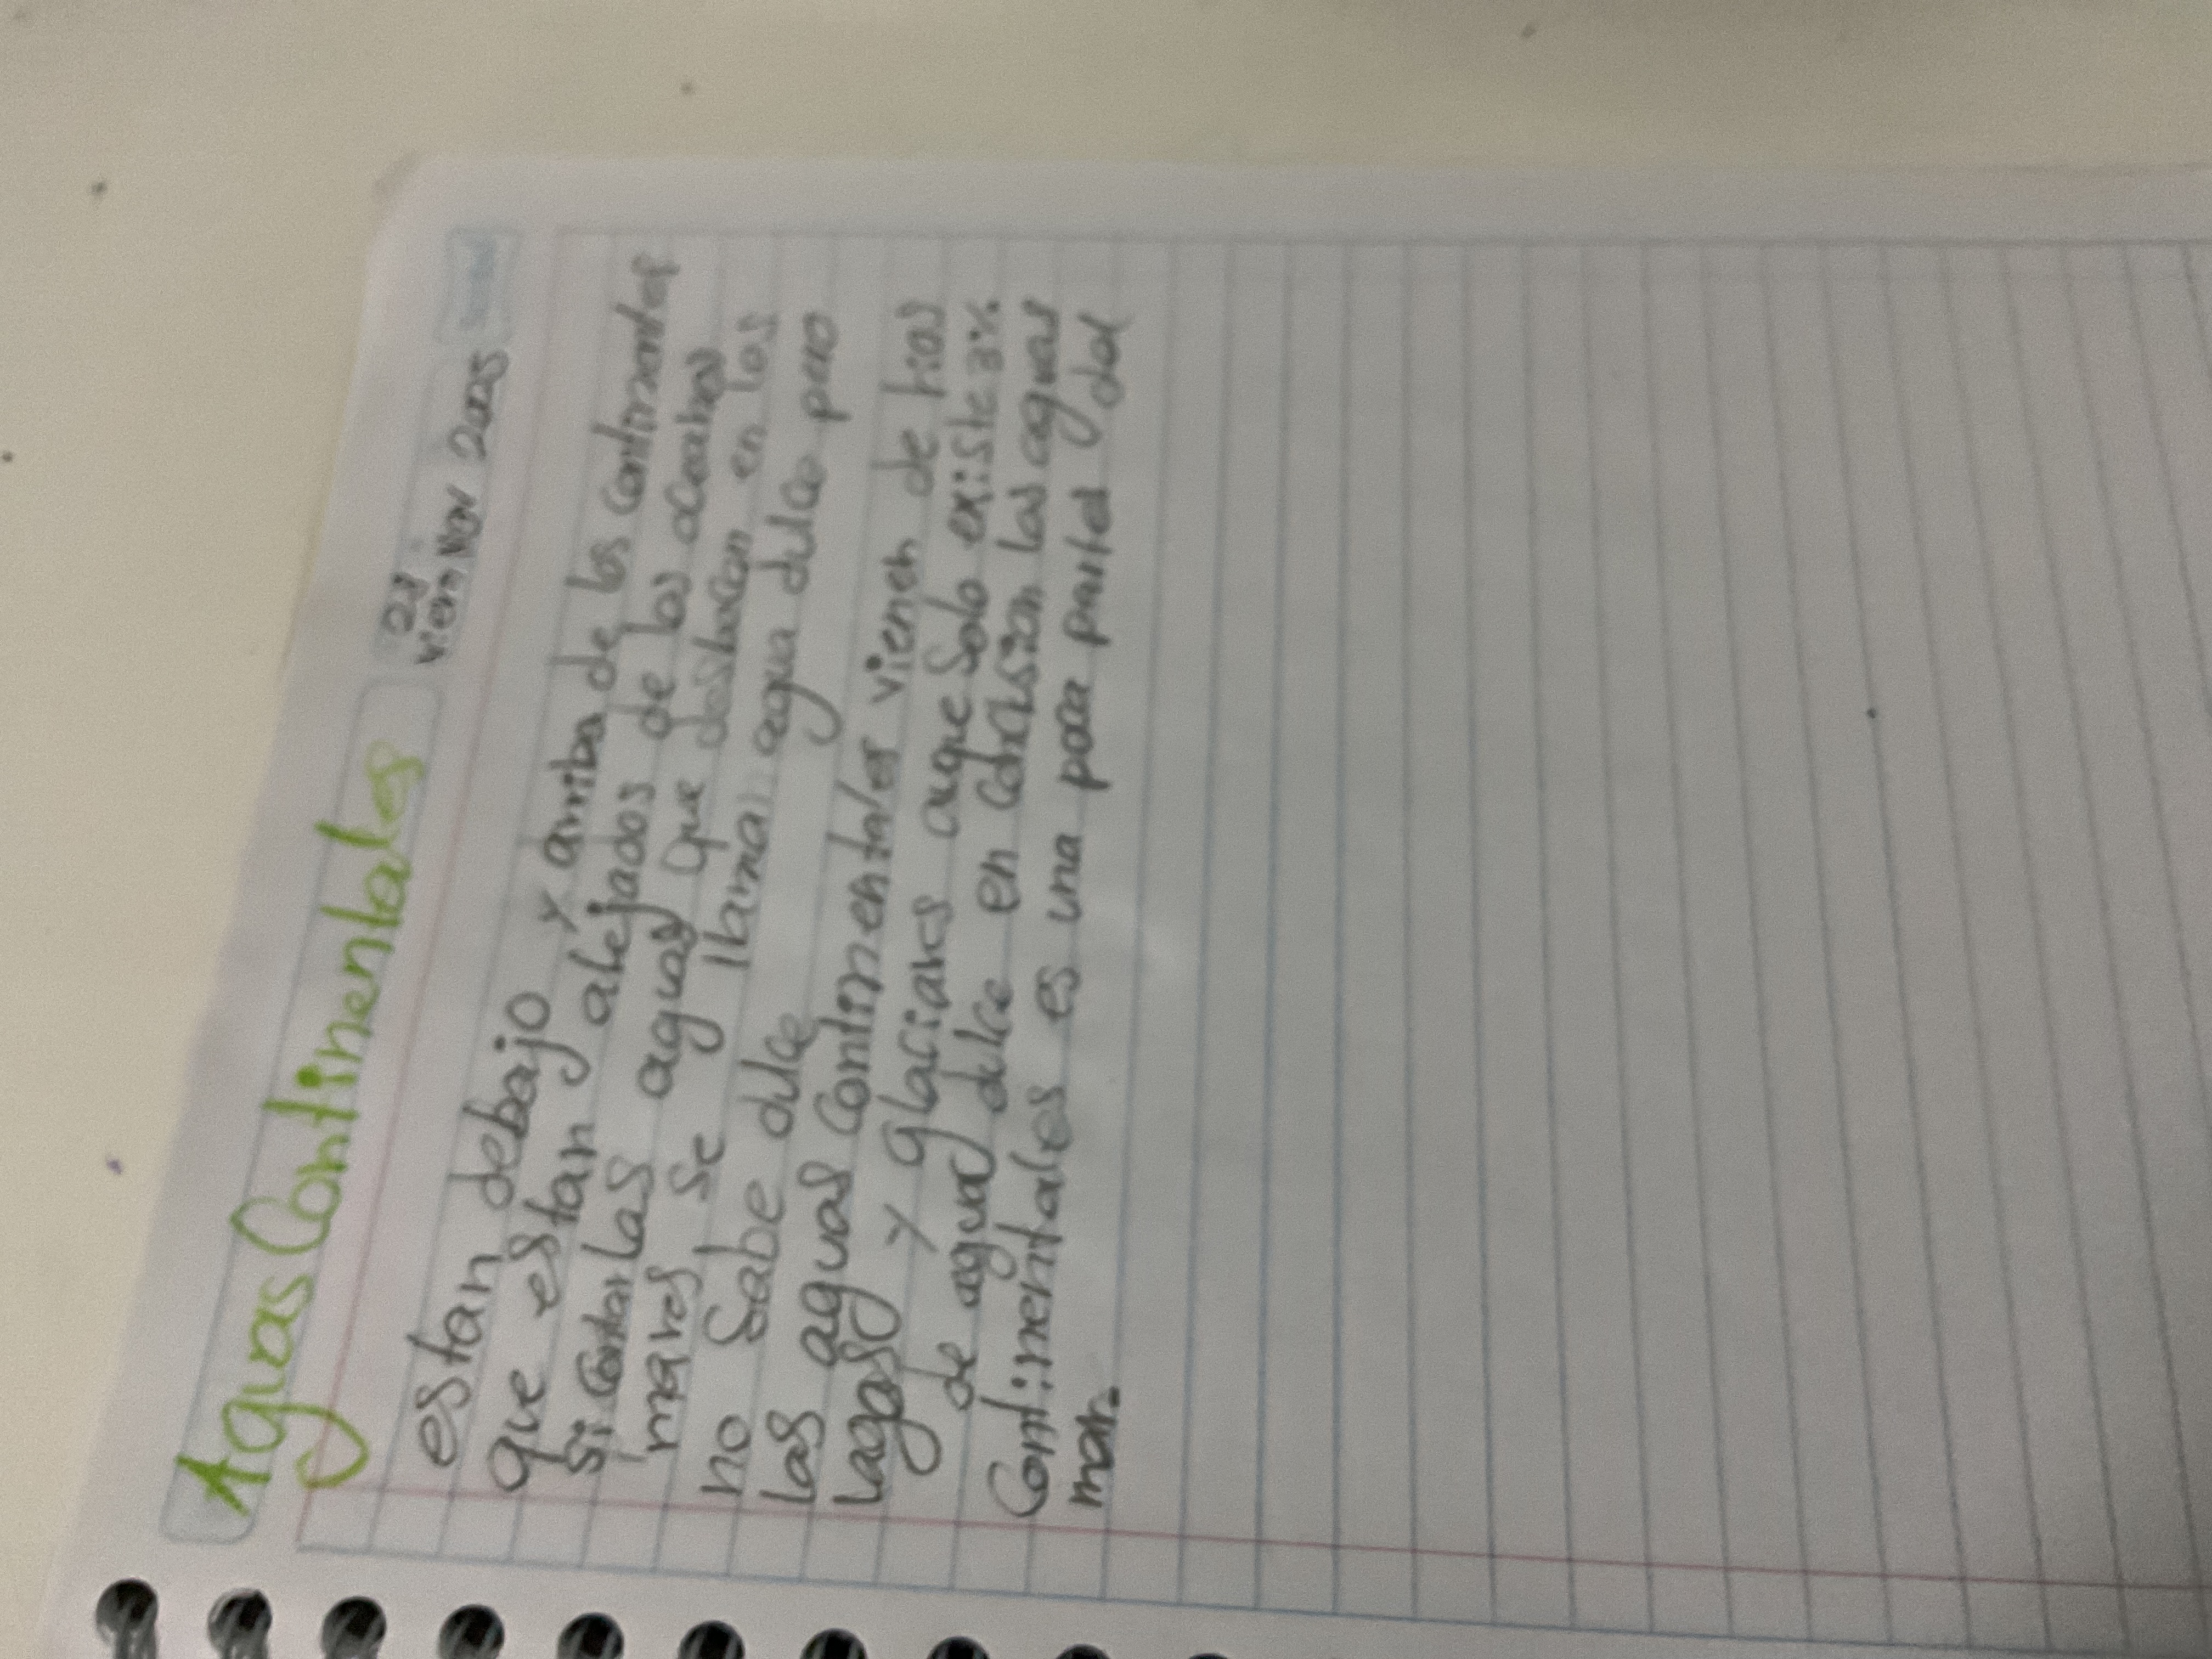 Aguas Continentales
21
vier Nov 2025
estan debajo y arriba de los continentes
que estan alejados de los oceanos
si contar las aguas que desbocan en los
mares se llaman agua dulce pero
no sabe dulce
las aguas Continentales vienen de rios
lagos y glaciares auque solo existe 3%
de agua dulce en conclusion las aguas
Continentales es una poca parte del
mar.